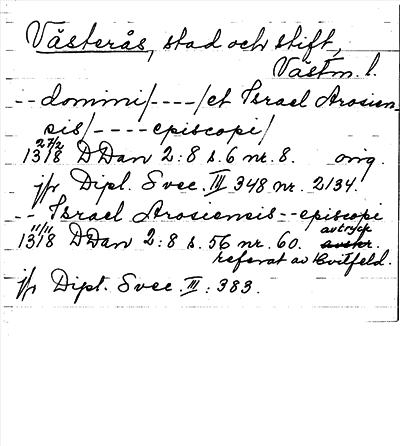 Västerås, stad och stift,
Västm. l.
-- domini/----/et Israel Arosien-
sis/----episcopi/
13 27/2 18 DDan 2:8 s. 6 nr. 8. orig.
jfr Dipl. Svec. III 348 nr. 2134.
-- Israel Arosiensis -- episcopi
13 11/11 18 DDan 2:8 s. 56 nr. 60. avtryck
referat av Hvitfeld.
jfr Dipl. Svec. III: 383.